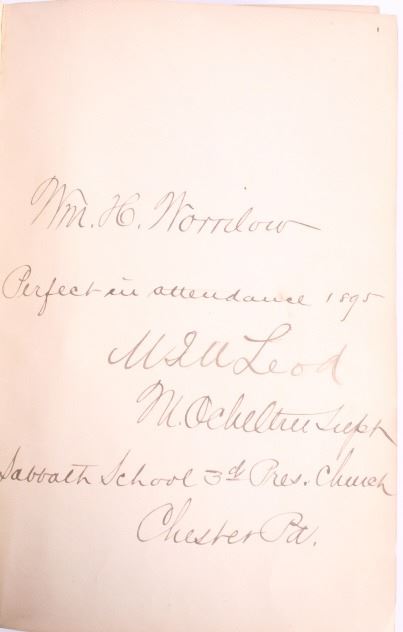 Wm. H. Worrilow
Perfect in attendance 1895
McLeod
M. Ocheltree Supt
Sabbath School 3d Pres. Church
Chester Pa.